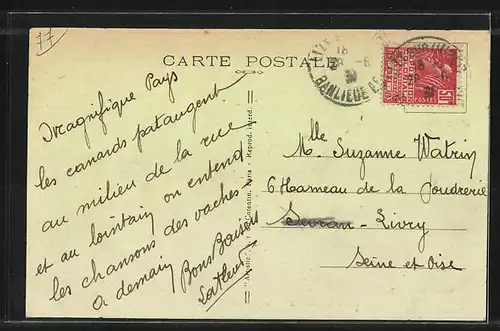 77
CARTE POSTALE
Magnifique Pays
les canards pataugent
au milieu de la rue
et au lointain on entend
les chansons des vaches
a demain Bons Baisers
Reprod. interd.
18
28 -6
BANLIEUE
POSTES
Mlle Suzanne Watrin
6 Hameau de la Poudrerie
Sevran-Livry
Seine et Oise